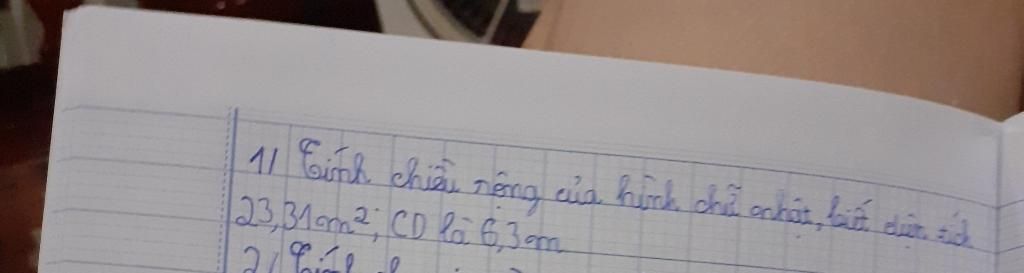 1/ Tính chiều rộng của hình chữ nhật, biết diện tích
23,31cm²; CD là 6,3cm
2/ Tính